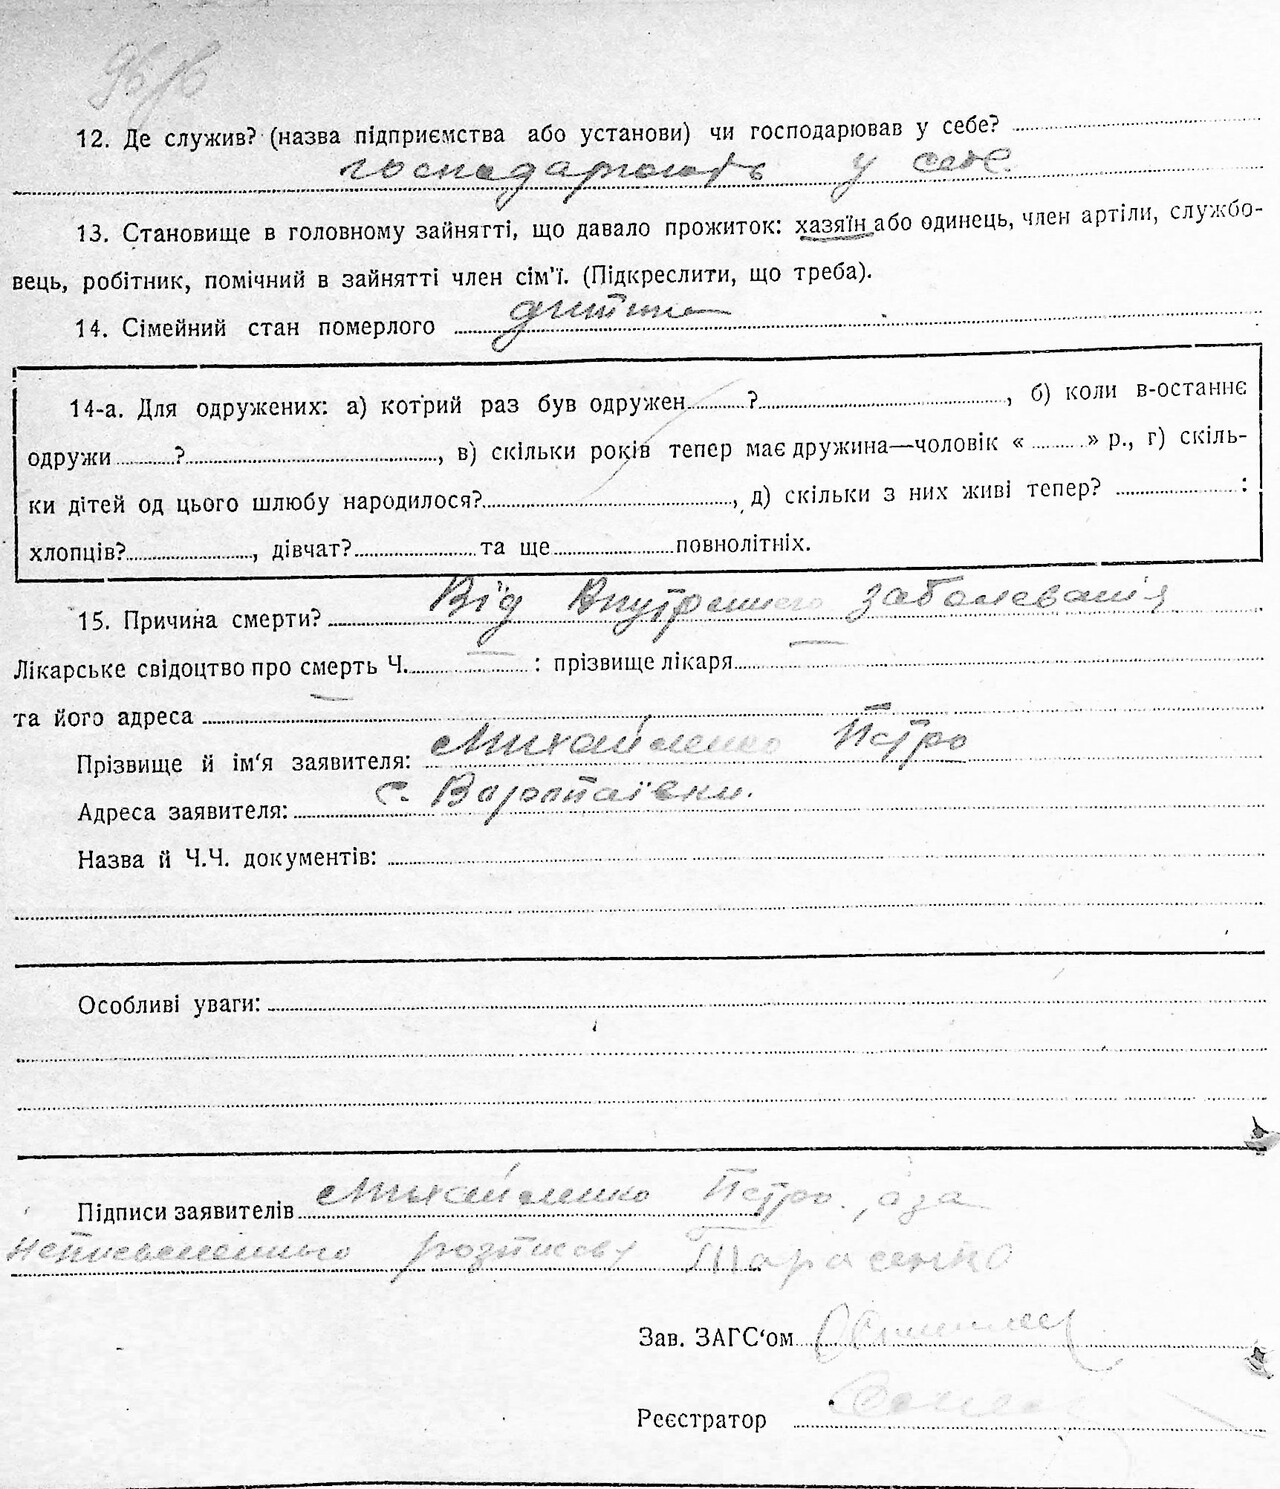 12. Де служив? (назва підприємства або установи) чи господарював у себе?
господарюють у себе.
13. Становище в головному зайнятті, що давало прожиток: хазяїн або одинець, член артіли, службо-
вець, робітник, помічний в зайнятті член сім'ї. (Підкреслити, що треба).
14. Сімейний стан померлого дитина
14-а. Для одружених: а) котрий раз був одружен ? , б) коли в-останнє
одружи ? , в) скільки років тепер має дружина—чоловік « » р., г) скіль-
ки дітей од цього шлюбу народилося? , д) скільки з них живі тепер? :
хлопців? , дівчат? та ще повнолітніх.
15. Причина смерти? Від Внутренного заболеванія
Лікарське свідоцтво про смерть Ч. — : прізвище лікаря —
та його адреса —
Прізвище й ім'я заявителя: Михайленко Петро
Адреса заявителя: с. Воротаївки.
Назва й Ч.Ч. документів:
Особливі уваги:
Підписи заявителів Михайленко Петро, а за
неписьменного розписавсь Тарасенко
Зав. ЗАГС'ом
Реєстратор